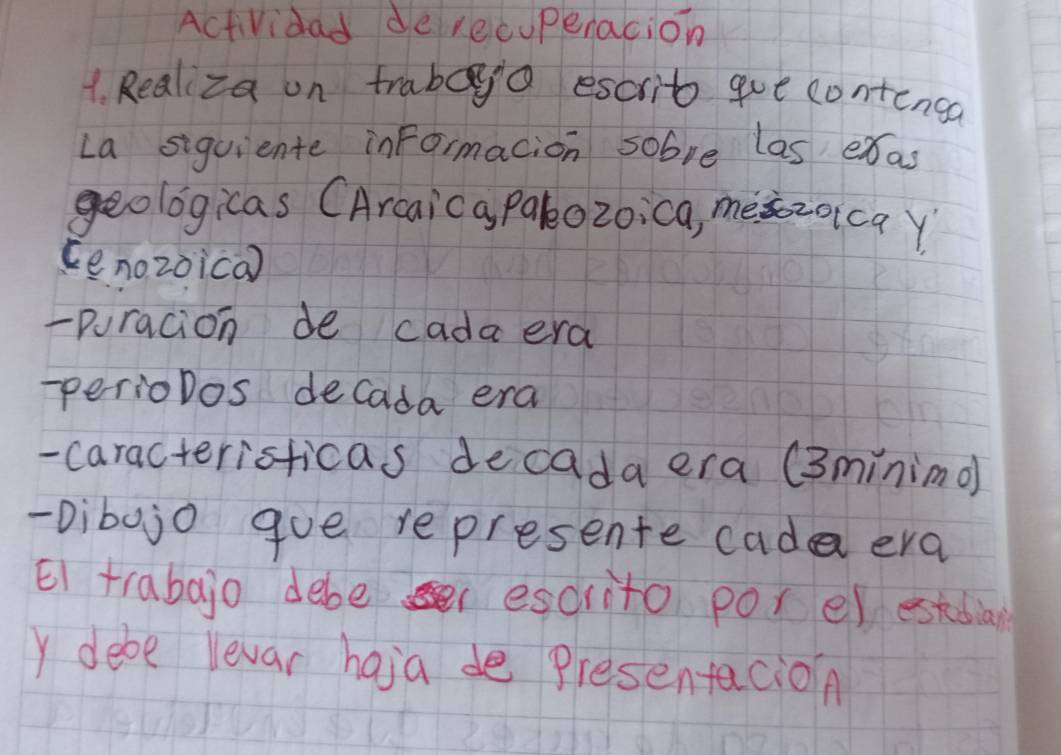 Actividad de recuperación
1. Realiza un trabajo escrito que contenga
La siguiente información sobre las eras
geológicas (Arcaica, Paleozoica, mesozoica y
Cenozoica)
-Duración de cada era
-perioDos de cada era
-caracteristicas de cada era (3 mínimo)
-Dibujo que represente cada era
El trabajo debe ser escrito por el estudiante
y debe llevar hoja de Presentación